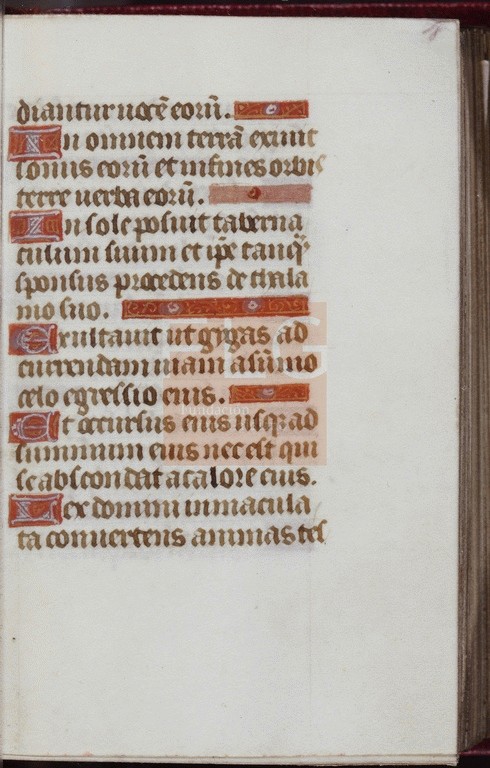 diantur uocē eorū.
In omnem terrā exiuit
sonus eorū et in fines orbis
terre uerba eorū.
In sole posuit taberna
culum suum et ip̄e tanq̄
sponsus procedens de thala
mo suo.
Exultauit ut gygas ad
currendam uiam a sūmo
celo egressio eius.
Et occursus eius usq; ad
summum eius nec est qui
se abscondat a calore eius.
Lex domini inmacula
ta conuertens animas tes
Fundación